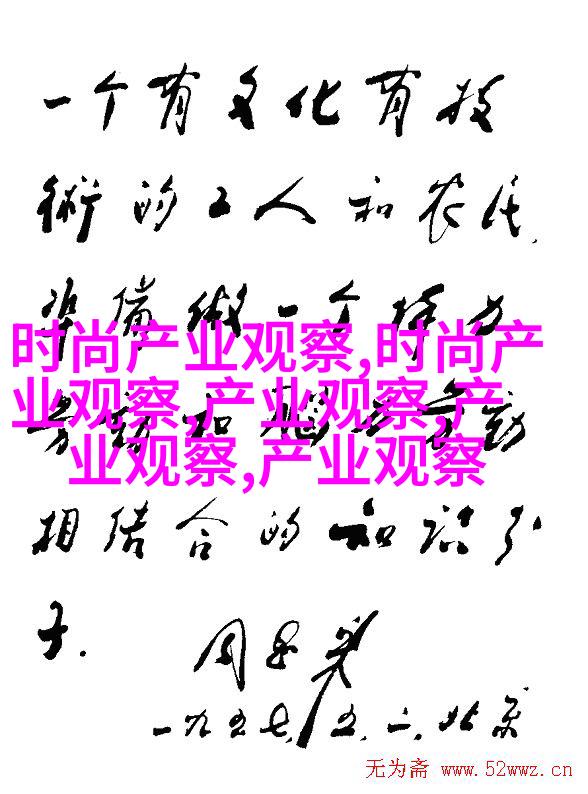 一个有文化有技
術的工人和农民,
準備做一个体力
时尚产业观察,时尚产
业观察,产业观察,产
业观察,产业观察
劳動和脑力劳動
相结合的知识分
子.
周恩来
一九五七,五.二.北京
无为斋 www.52wwz.cn